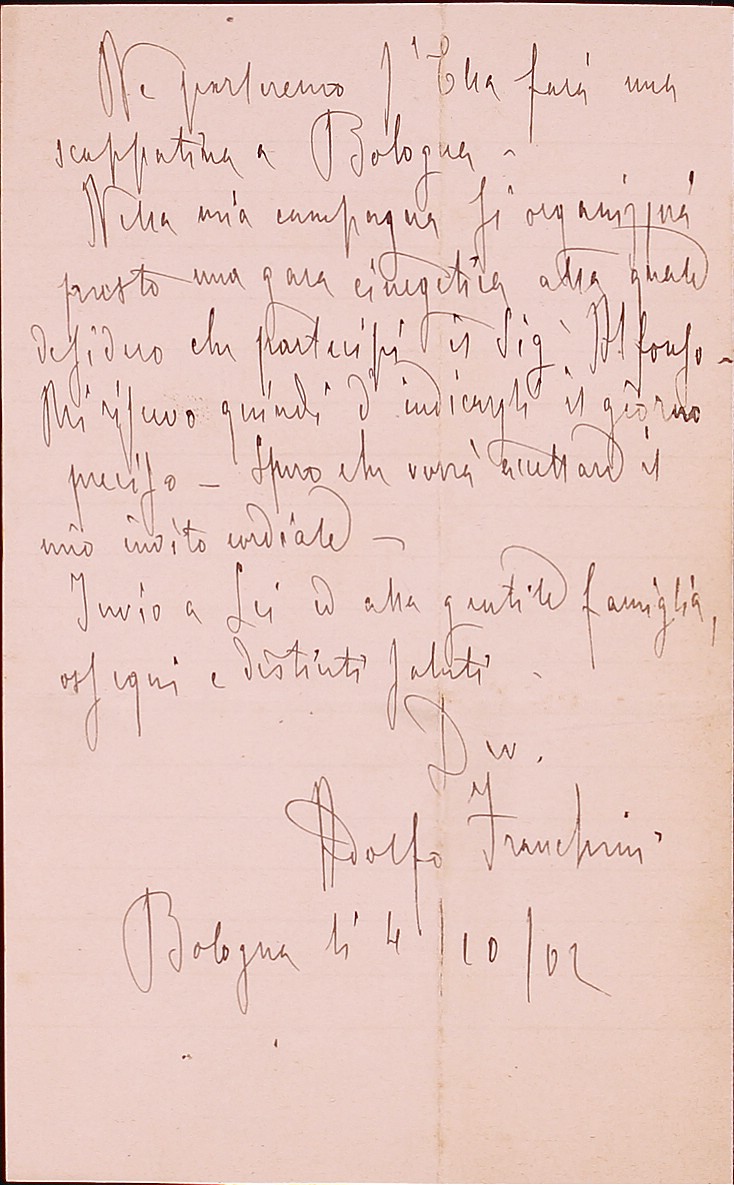 Ne parleremo s'Ella farà una
scappatina a Bologna -
Nella mia campagna si organizzerà
presto una gara cinegetica alla quale
desidero che partecipi il Sig. Alfonso -
Mi riservo quindi d'indicargli il giorno
preciso - Spero che vorrà accettare il
mio invito cordiale -
Invio a Lei ed alla gentile famiglia,
ossequi e distinti saluti -
Dev.
Adolfo Franchini
Bologna li 4/10/02